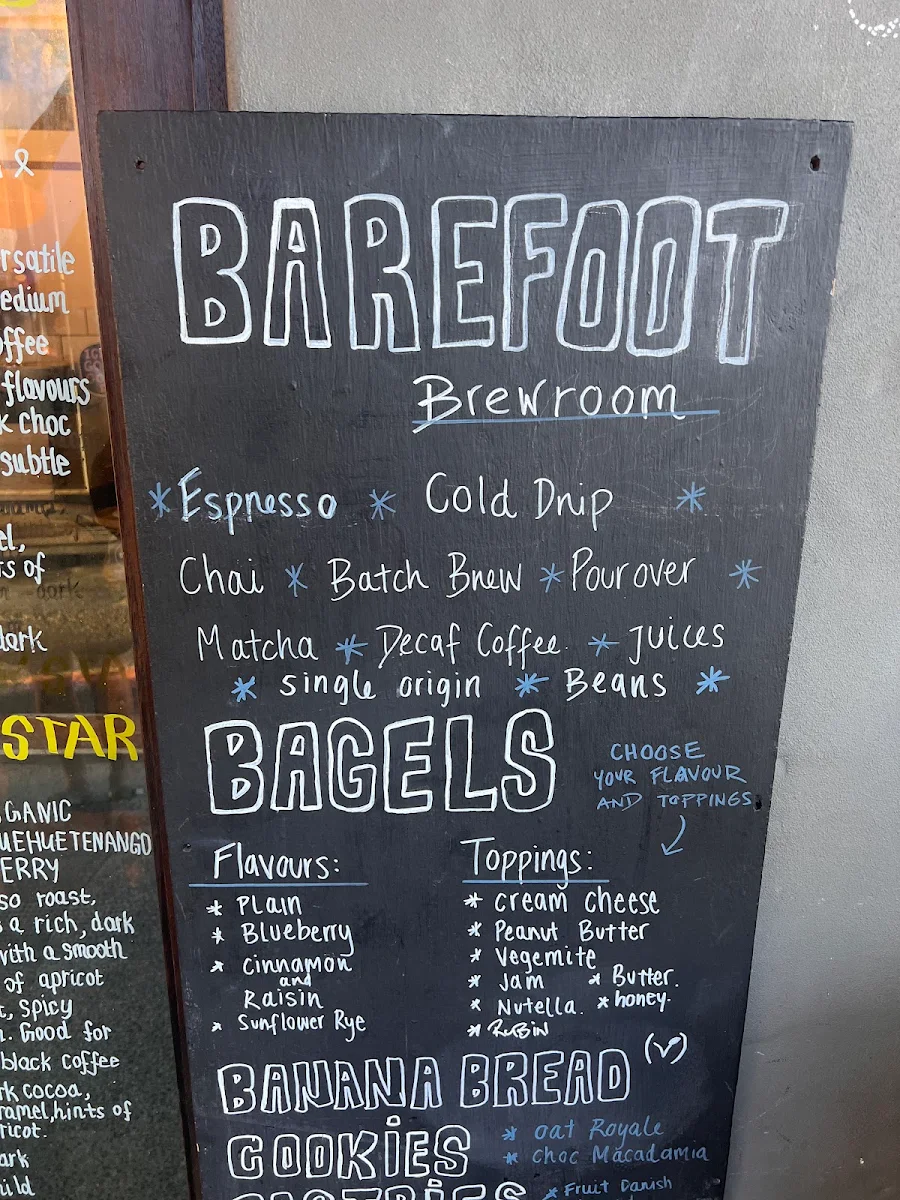 BAREFOOT
Brewroom
* Espresso * Cold Drip *
Chai * Batch Brew * Pour over *
Matcha * Decaf Coffee * Juices
* single origin * Beans *
BAGELS
CHOOSE
YOUR FLAVOUR
AND TOPPINGS
Flavours:
* Plain
* Blueberry
* Cinnamon
and
Raisin
* Sunflower Rye
Toppings:
* cream cheese
* Peanut Butter
* Vegemite
* Jam * Butter.
* Nutella. * honey.
BANANA BREAD (V)
COOKIES
* oat Royale
* choc Macadamia
PASTRIES
* Fruit Danish
&
rsatile
edium
offee
flavours
k choc
subtle
el,
ts of
dark
STAR
GANIC
UEHUETENANGO
ERRY
so roast,
s a rich, dark
with a smooth
of apricot
t, spicy
. Good for
black coffee
rk cocoa,
ramel, hints of
ricot.
ark
ild